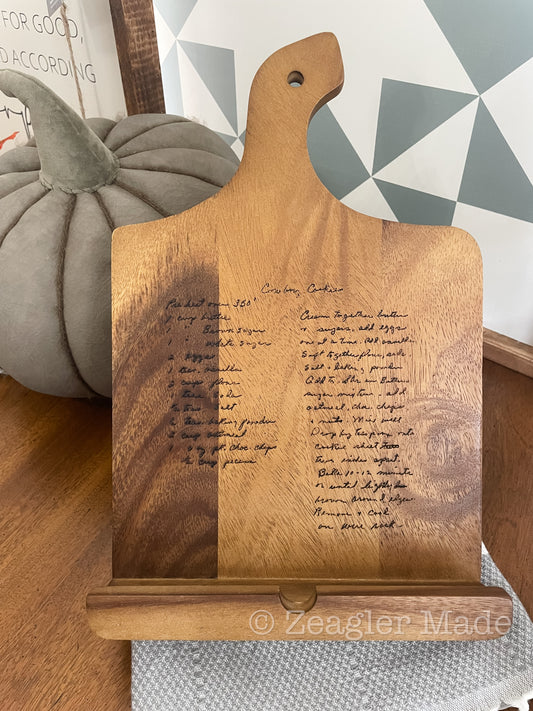 FOR GOOD,
D ACCORDING
Cowboy Cookies
Preheat oven 350°
1 cup butter
1 " Brown Sugar
1 " White Sugar
2 eggs
1 teas. vanilla
2 cups flour
teas. soda
teas. salt
teas. baking powder
2 cup oatmeal
1 pk. Choc. chips
cup pecans
Cream together butter
+ sugars, add eggs
one at a time. Add vanilla
Sift together flour, soda
Salt + baking powder
Add to
sugar mixture. add
oatmeal, choc. chips
+ nuts. Mix well
Drop by teaspoon onto
cookie sheet
two inches apart.
Bake 10-12 minute
or until lightly
brown around edges
Remove + cool
on wire rack.
© Zeagler Made